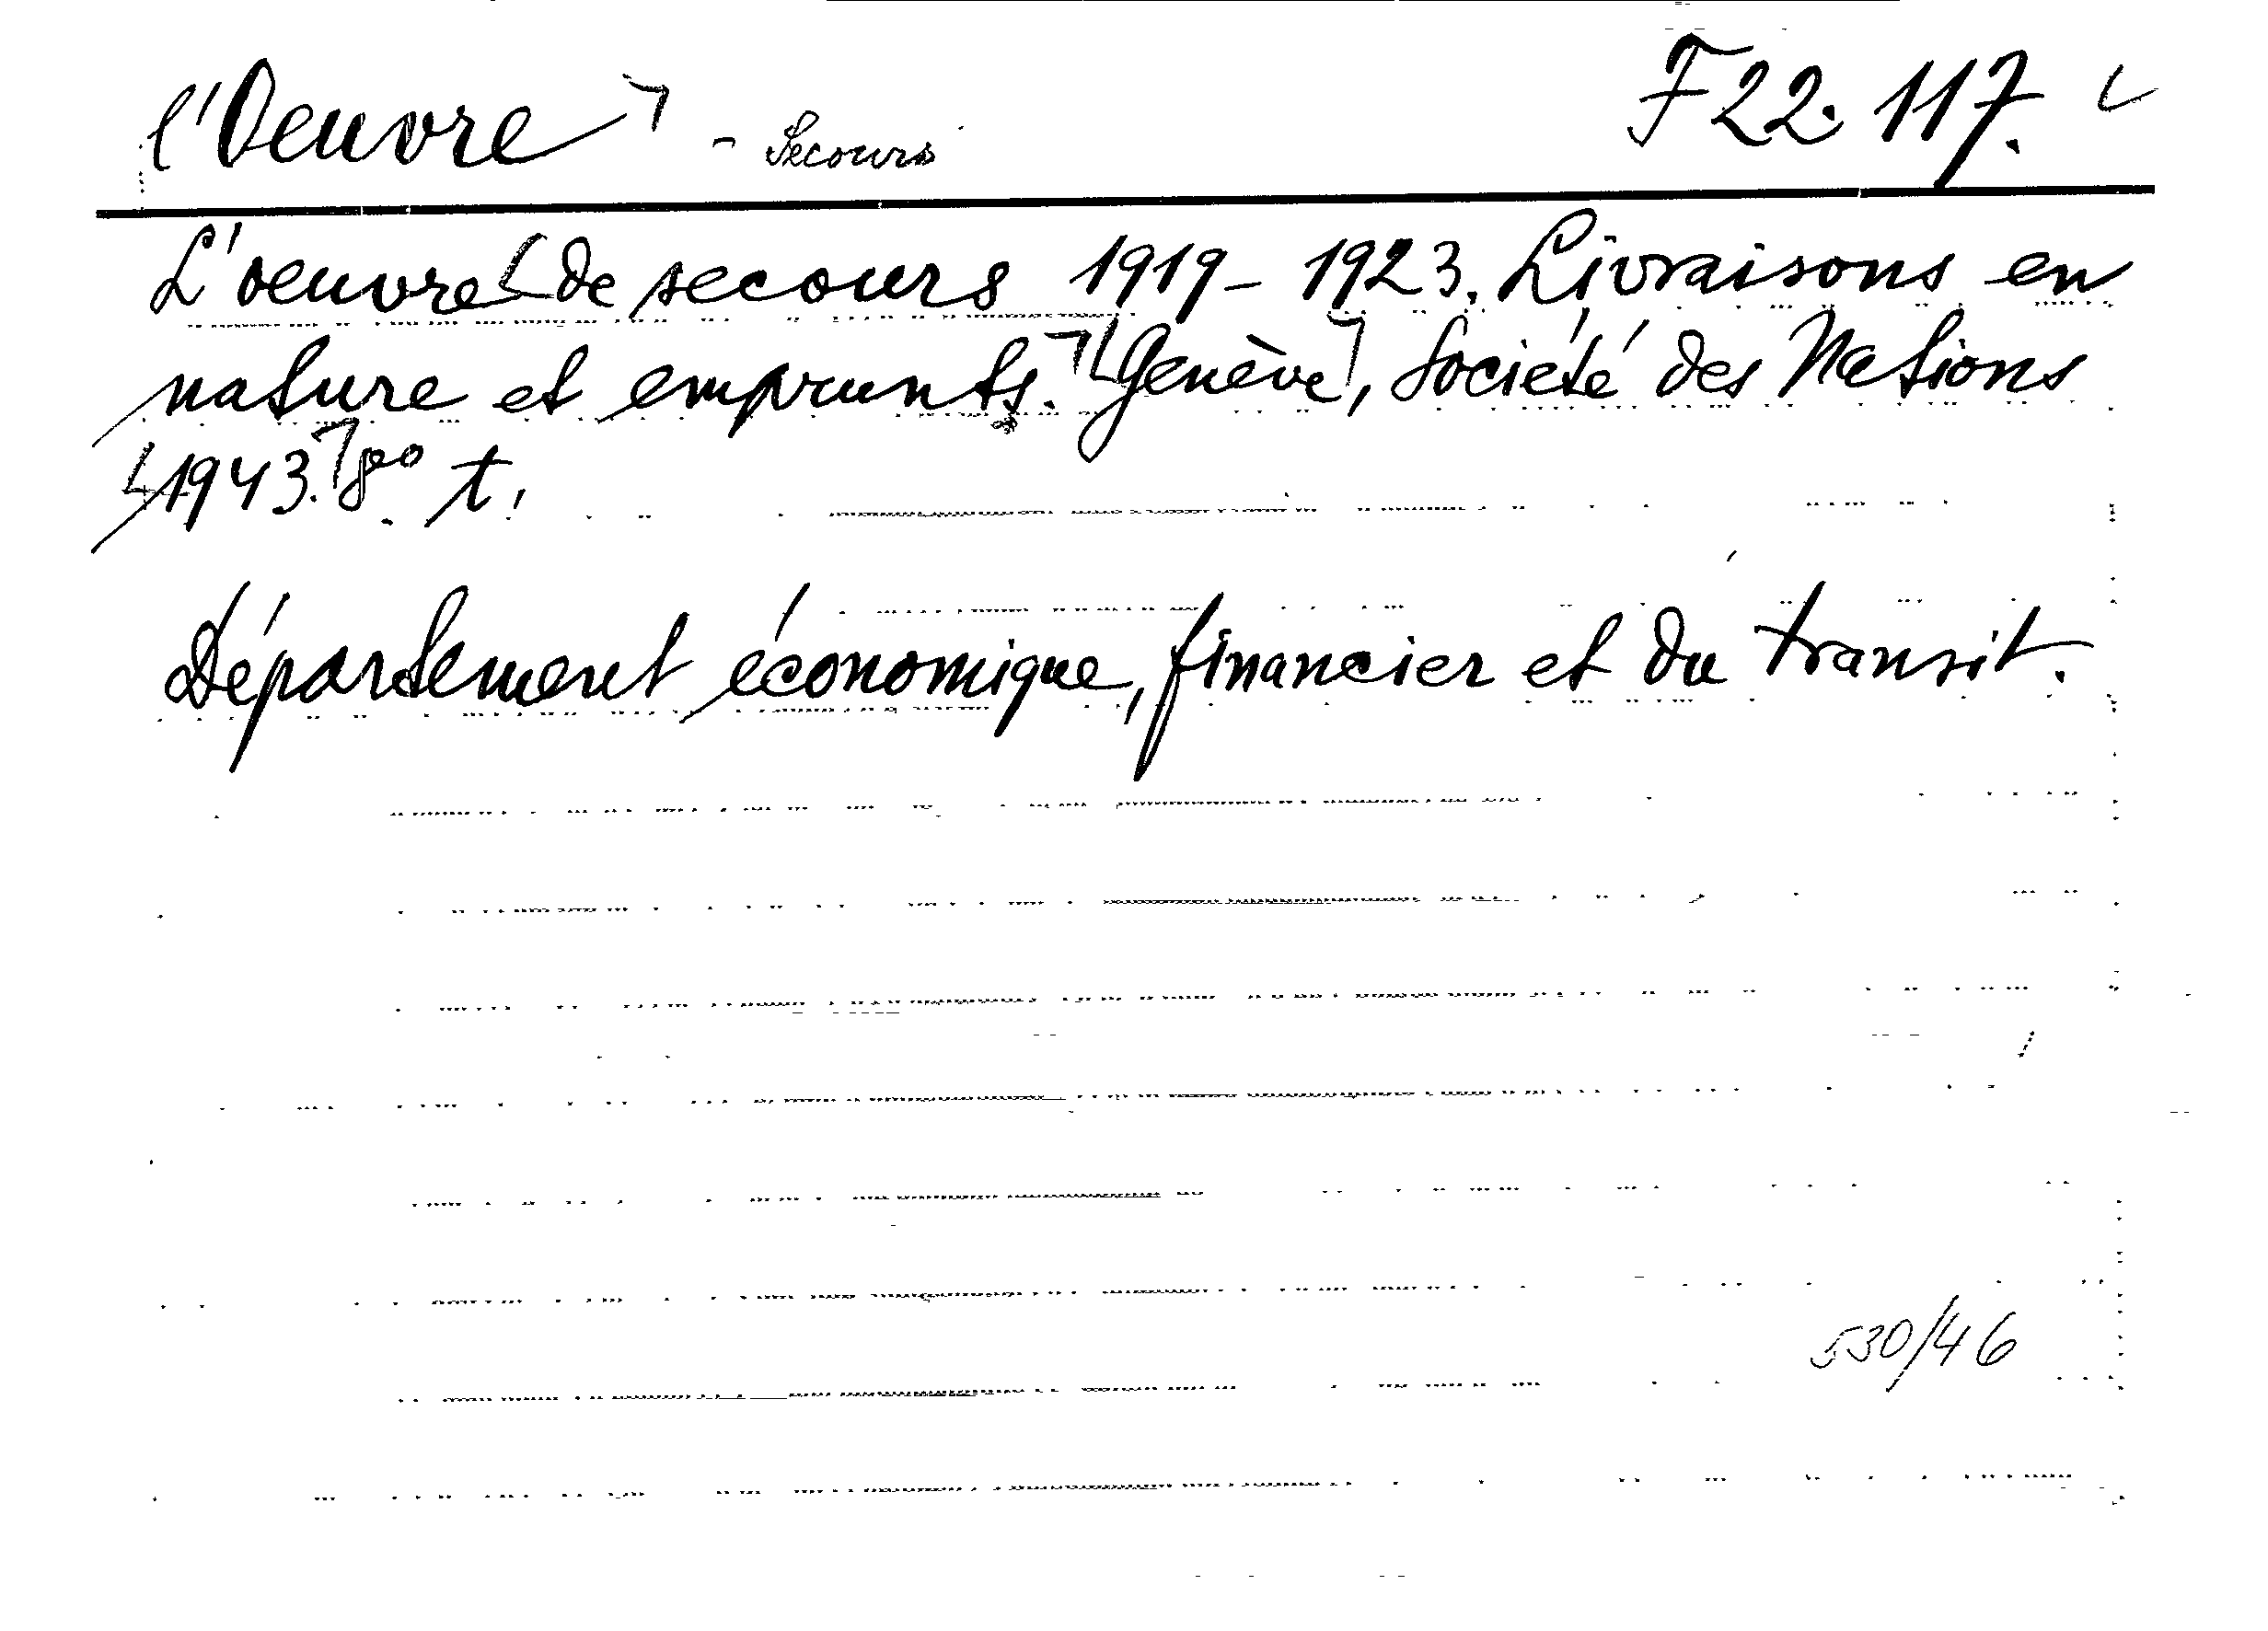 l'Oeuvre - Secours F 22. 117.
L'oeuvre de secours 1919-1923. Livraisons en
nature et emprunts. Genève, Société des Nations
1943. 8º. t.
Département économique, financier et du transit.
530/46